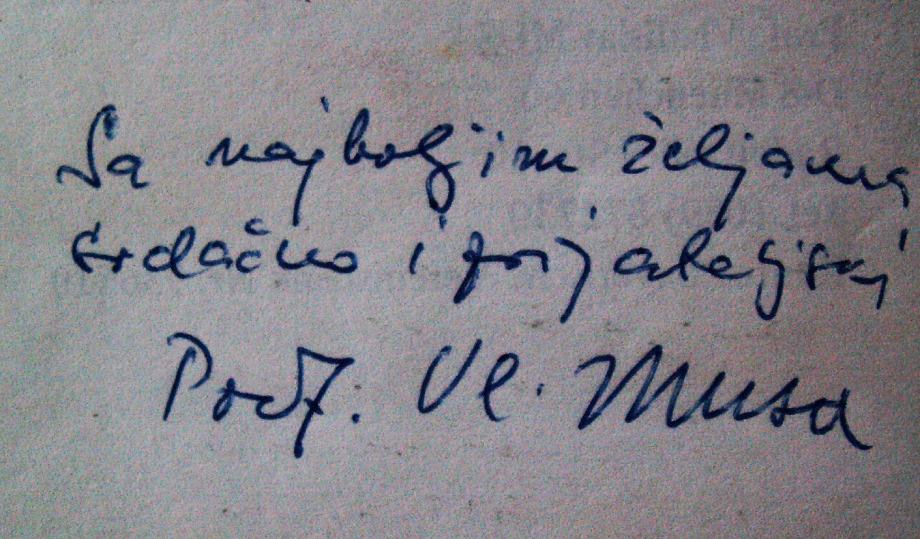 Sa najboljim željama
srdačno i prijateljski
Prof. Vl. Musa